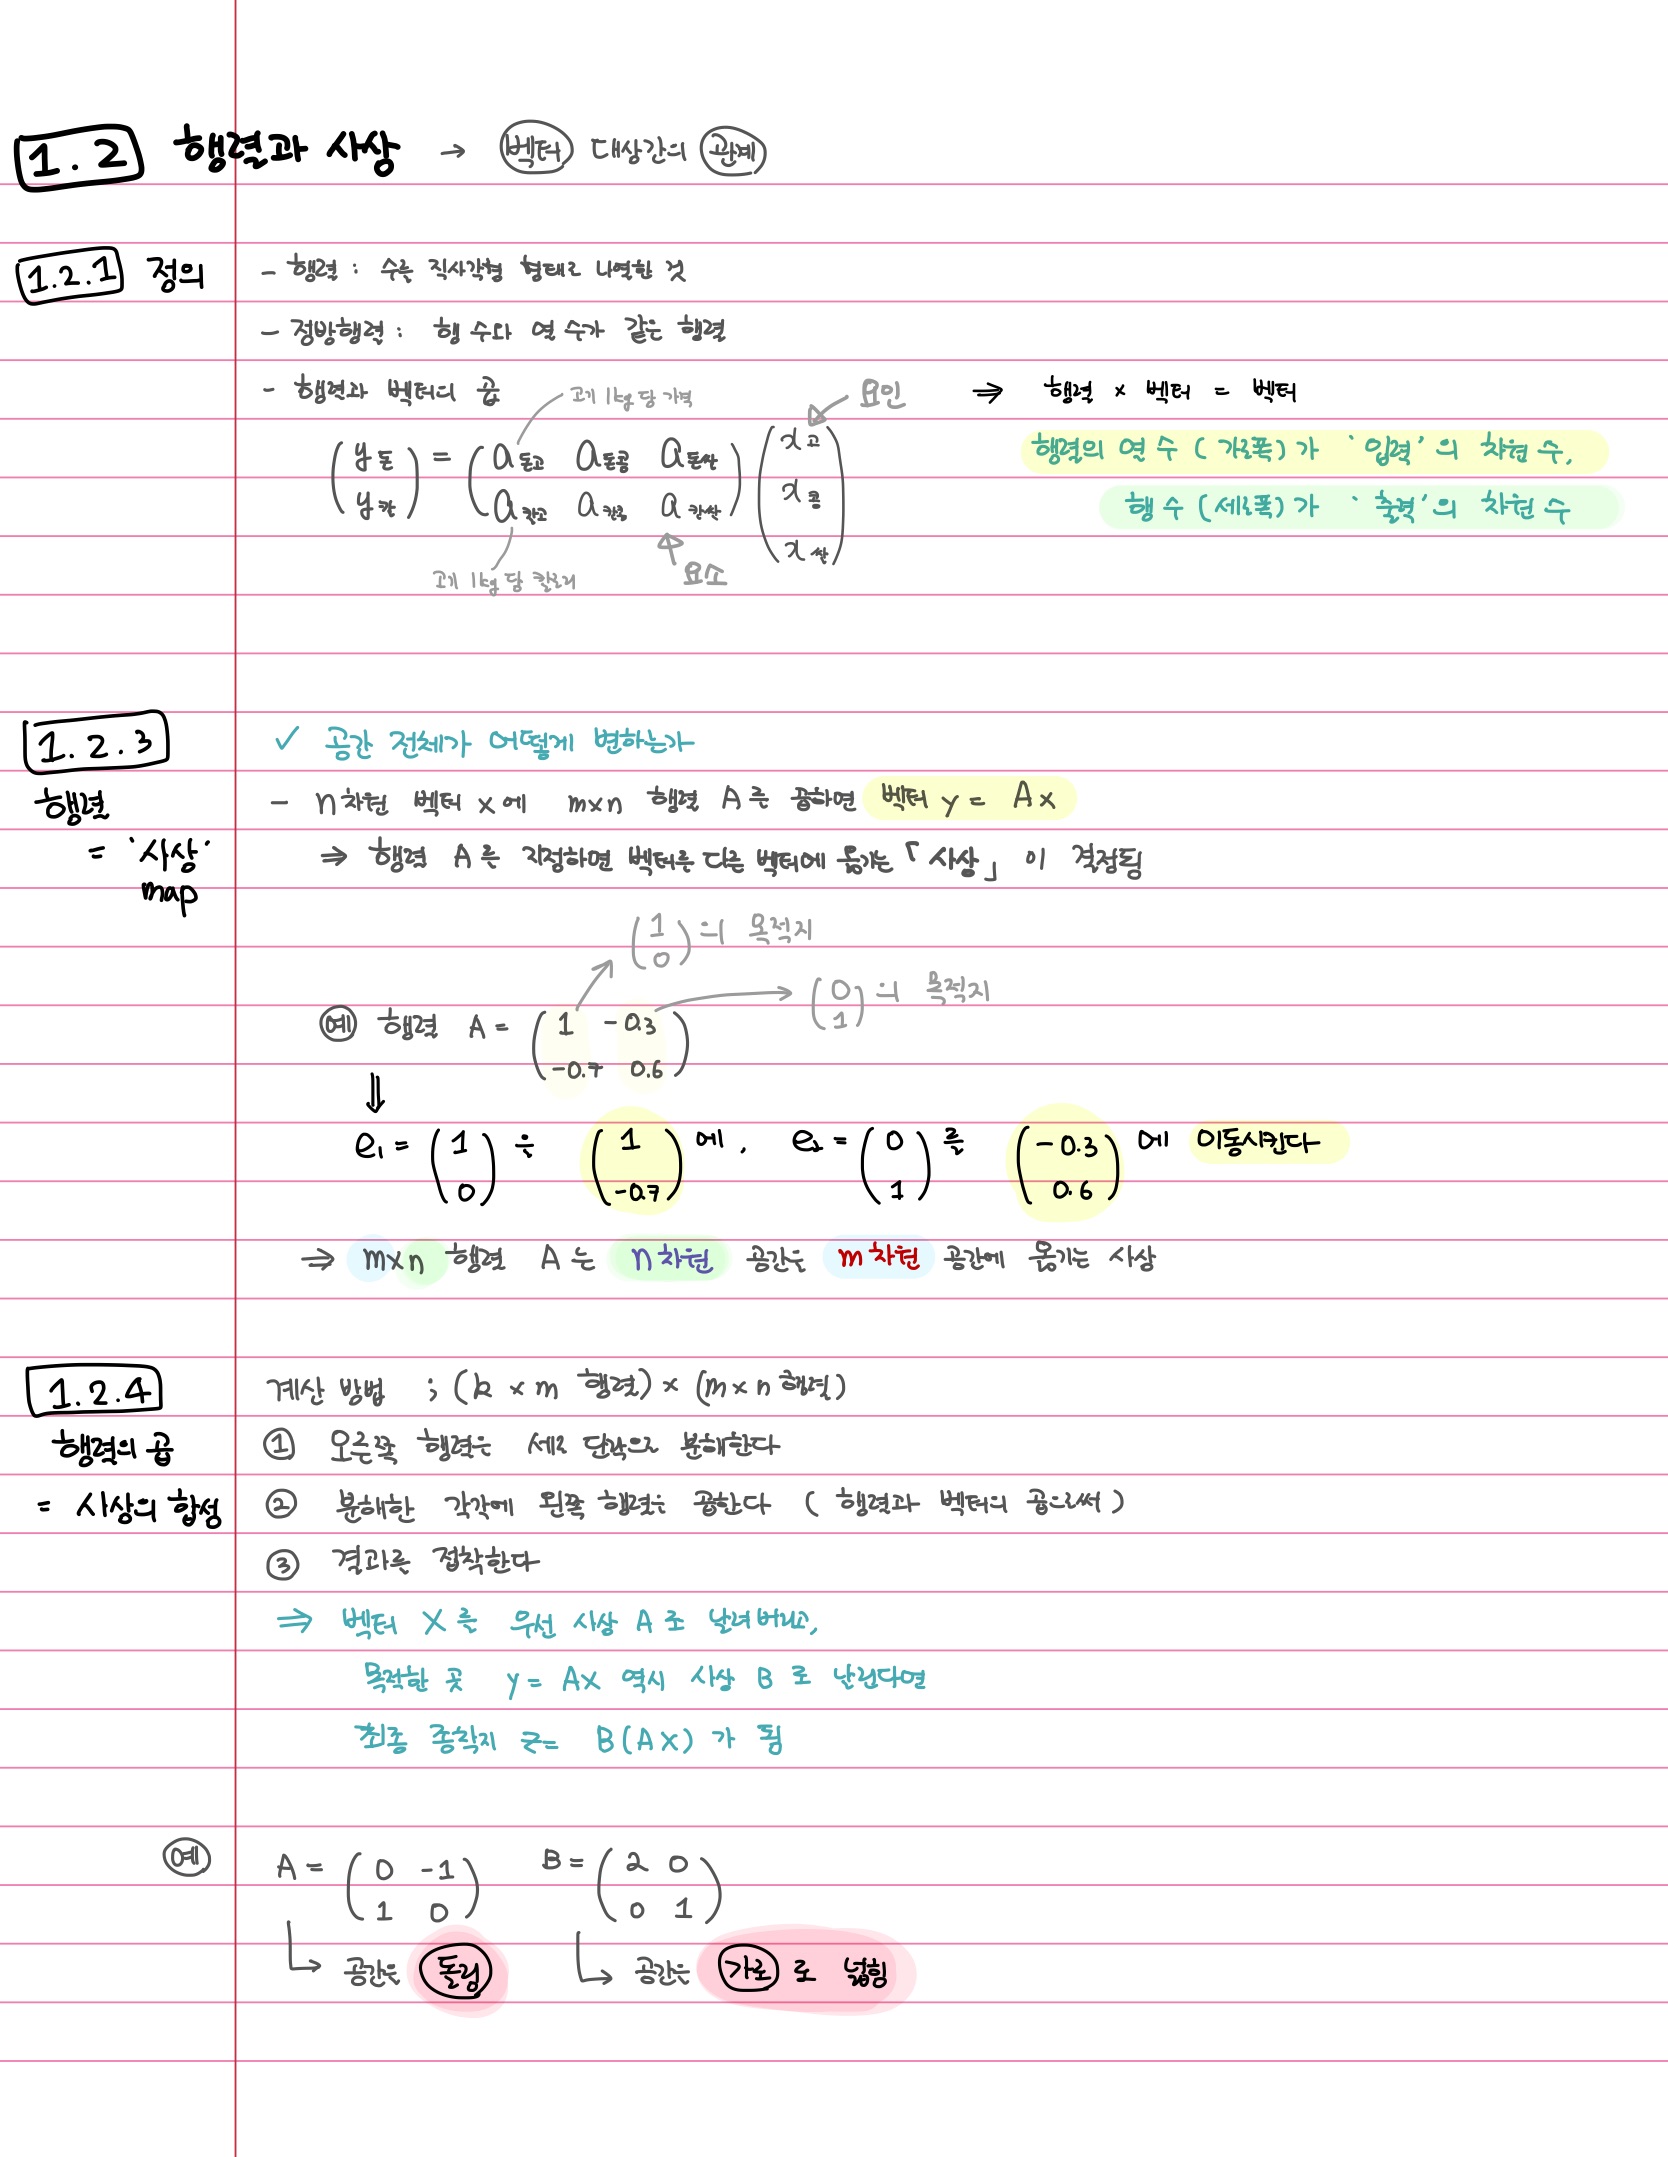 1.2 행렬과 사상 → 벡터 대상간의 관계
1.2.1 정의
- 행렬 : 수를 직사각형 형태로 나열한 것
- 정방행렬 : 행 수와 열 수가 같은 행렬
- 행렬과 벡터의 곱
고기 1kg 당 가격
요인
⇒ 행렬 × 벡터 = 벡터
(y돈 y칼) = (a돈고 a돈콩 a돈쌀 a칼고 a칼콩 a칼쌀) (x고 x콩 x쌀)
행렬의 열 수 (가로폭)가 '입력'의 차원 수,
행 수 (세로폭)가 '출력'의 차원 수
고기 1kg 당 칼로리
요소
1.2.3
행렬
= '사상'
map
✓ 공간 전체가 어떻게 변하는가
- n차원 벡터 x에 m×n 행렬 A를 곱하면 벡터 y = Ax
⇒ 행렬 A를 지정하면 벡터를 다른 벡터에 옮기는 「사상」이 결정됨
(1 0)의 목적지
(0 1)의 목적지
예 행렬 A = (1 -0.3
-0.7 0.6)
⇓
e₁ = (1 0)을 (1 -0.7)에, e₂ = (0 1)를 (-0.3 0.6)에 이동시킨다
⇒ m×n 행렬 A는 n차원 공간을 m차원 공간에 옮기는 사상
1.2.4
행렬의 곱
= 사상의 합성
계산 방법 ; (k × m 행렬) × (m × n 행렬)
① 오른쪽 행렬을 세로 단락으로 분해한다
② 분해한 각각에 왼쪽 행렬을 곱한다 (행렬과 벡터의 곱으로써)
③ 결과를 접착한다
⇒ 벡터 X를 우선 사상 A로 날려버리고,
목적한 곳 y = AX 역시 사상 B로 날린다면
최종 종착지 z = B(AX)가 됨
예
A = (0 -1
1 0)
B = (2 0
0 1)
공간을 돌림
공간을 가로로 넓힘